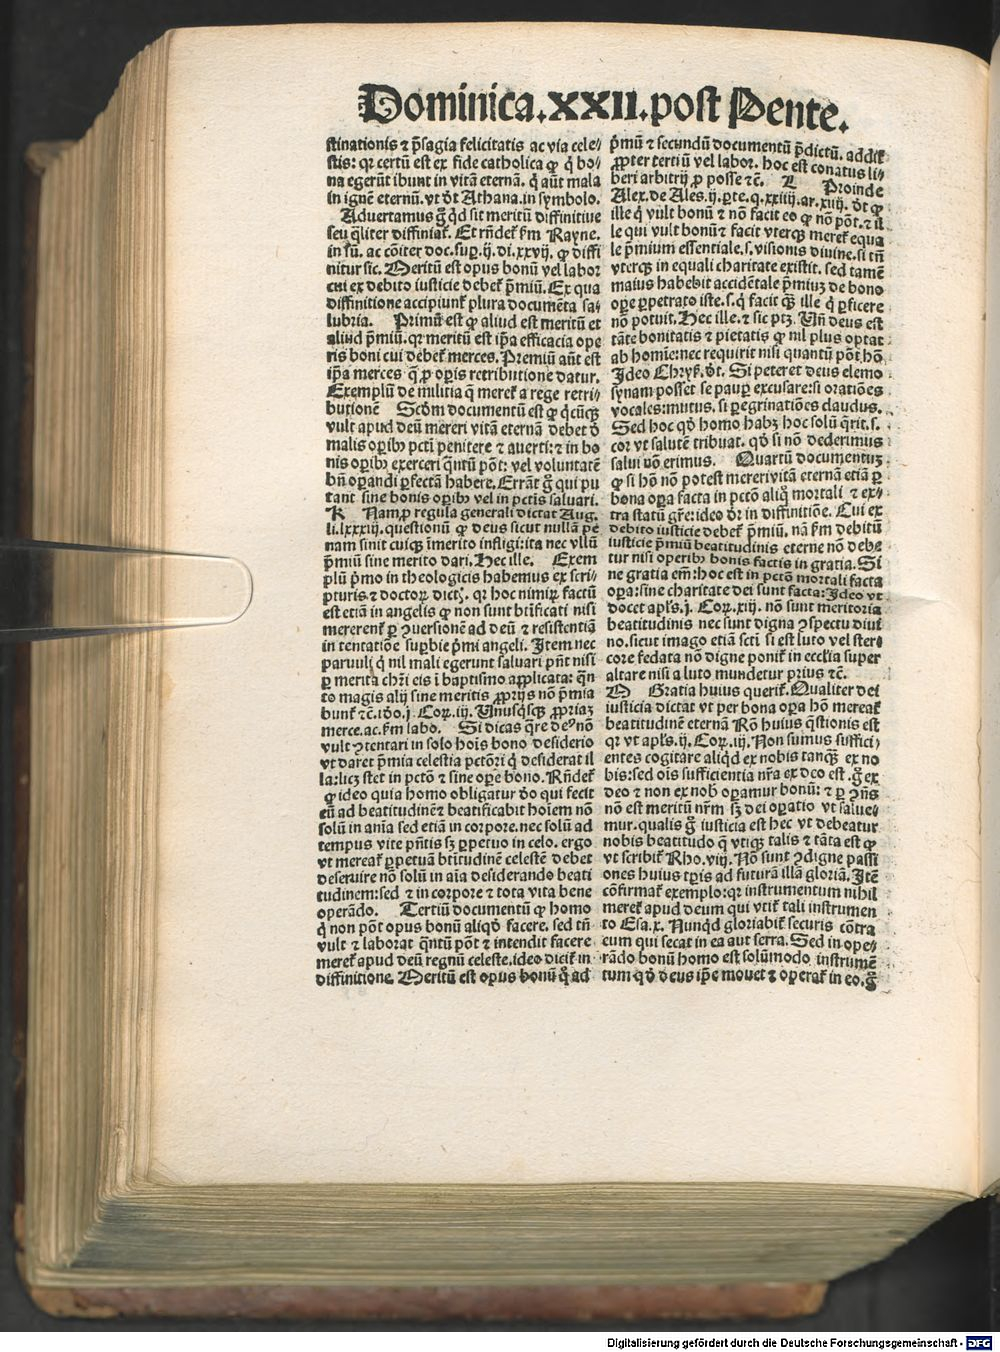 Dominica.XXII.post Pente.
stinationis ⁊ p̃sagia felicitatis ac via cele⸗
stis: qꝛ certũ est ex fide catholica ꝙ q̇ bo⸗
na egerũt ibunt in vitã eternã. q̇ aũt mala
in ignẽ eternũ. vt ðt Athana. in symbolo.
Aduertamus g̊ qͥd sit meritũ diffinitiue
seu q̃liter diffiniat᷑. Et rñdet᷑ ẜm Rayne.
in sũ. ac cõiter doc. suꝑ .ij. di. xxvij. ꝙ diffi
nitur sic. Meritũ est opus bonũ vel labor
cui ex debito iusticie debet᷑ p̃miũ. Ex qua
diffinitione accipiunt᷑ plura documẽta sa⸗
lubria. Primũ est ꝙ aliud est meritũ et
aliud p̃miũ. qꝛ meritũ est ip̃a efficacia ope
ris boni cui debet᷑ merces. Premiũ aũt est
ip̃a merces q̃ ꝓ oꝑis retributione datur.
Exemplũ de militia q̃ meret᷑ a rege retri⸗
butionẽ Scðm documentũ est ꝙ q̇cũqꝫ
vult apud deũ mereri vitã eternã debet ð
malis oꝑibꝰ pctĩ penitere ⁊ auerti: ⁊ in bo
nis oꝑibꝰ exerceri q̃ntũ põt: vel voluntatẽ
bñ oꝑandi ꝑfectã habere. Errãt g̊ qui pu
tant sine bonis oꝑibꝰ vel in pctĩs saluari.
K Nam ꝓ regula generali dictat Aug.
li. lxxxiij. questionũ ꝙ deus sicut nullã pe
nam sinit cuiqꝫ ĩmerito infligi: ita nec vllũ
p̃miũ sine merito dari. Hec ille. Exem
plũ p̃mo in theologicis habemus ex scri⸗
pturis ⁊ doctoꝝ dictꝭ. qꝛ hoc nimiꝝ factũ
est etiã in angelis ꝙ non sunt btĩficati nisi
mererent᷑ ꝑ ꝯuersionẽ ad deũ ⁊ resistentiã
in tentatiõe suꝑbie p̃mi angeli. Item nec
paruuli q̇ nil mali egerunt saluari pñt nisi
ꝑ merita chr̃i eis ĩ baptismo applicata: q̃n
to magis alij sine meritis ꝓprijs nõ p̃mia
bunt᷑ ⁊c. iðo. j. Coꝝ. iij. Unusqͥsqꝫ ꝓpriaꝫ
merce. ac. ẜm labo. Si dicas q̃re deꝰ nõ
vult ꝯtentari in solo hoĩs bono desiderio
vt daret p̃mia celestia pctõri q̇ desiderat il
la: licꝫ stet in pctõ ⁊ sine oꝑe bono. Rñdet᷑
ꝙ ideo quia homo obligatur ðo qui fecit
eũ ad beatitudinẽ ⁊ beatificabit hoĩem nõ
solũ in aĩa sed etiã in corpore. nec solũ ad
tempus vite p̃ntis sꝫ ꝑpetuo in celo. ergo
vt mereat᷑ ꝑpetuã btĩtudinẽ celestẽ debet
deseruire nõ solũ in aĩa desiderando beati
tudinem: sed ⁊ in corpore ⁊ tota vita bene
operãdo. Tertiũ documentũ ꝙ homo
q̇ non põt opus bonũ aliqð facere. sed tñ
vult ⁊ laborat q̃ntũ põt ⁊ intendit facere
meret᷑ apud deũ regnũ celeste. ideo dicit᷑ in
diffinitione. Meritũ est opus bonũ q̇ ad
p̃mũ ⁊ secundũ documentũ p̃dictũ. addit᷑
ꝓpter tertiũ vel labor. hoc est conatus li⸗
beri arbitrij ꝓ posse ⁊c. L Proinde
Alex. de Ales. ij. ꝑte. q. xxiiij. ar. xiij. ðt ꝙ
ille q̇ vult bonũ ⁊ nõ facit eo ꝙ nõ põt. ⁊ il
le qui vult bonũ ⁊ facit vterqꝫ meret᷑ equa
le p̃mium essentiale. s. visionis diuine. si tñ
vterqꝫ in equali charitate existit. sed tamẽ
maius habebit accidẽtale p̃miuꝫ de bono
oꝑe ꝑpetrato iste. s. q̇ facit qꝫ ille q̇ ꝑficere
nõ potuit. Hec ille. ⁊ sic ptꝫ. Uñ deus est
tãte bonitatis ⁊ pietatis ꝙ nil plus optat
ab homĩe: nec requirit nisi quantũ põt hõ.
Ideo Chryẜ. ðt. Si peteret deus elemo
synam posset se pauꝑ excusare: si oratiões
vocales: mutus. si ꝑegrinatiões claudus.
Sed hoc qð homo habꝫ hoc solũ q̃rit. s.
cor vt salutẽ tribuat. qð si nõ dederimus
salui nõ erimus. Quartũ documentuꝫ
ꝙ si hõ nõ potest mereri vitã eternã etiã ꝑ
bona oꝑa facta in pctõ aliq̊ mortali ⁊ ex⸗
tra statũ gr̃e: ideo ðr in diffinitiõe. Cui ex
debito iusticie debet᷑ p̃miũ. nã ẜm debitũ
iusticie p̃miũ beatitudinis eterne nõ debe
tur nisi operibꝰ bonis factis in gratia. Si
ne gratia em̃: hoc est in pctõ mortali facta
oꝑa: sine charitate dei sunt facta: Ideo vt
docet apl̃s. j. Coꝝ. xiij. nõ sunt meritoria
beatitudinis nec sunt digna ꝯspectu diui
no. sicut imago etiã sctĩ si est luto vel ster⸗
core fedata nõ digne ponit᷑ in eccl̃ia super
altare nisi a luto mundetur prius ⁊c.
M Gratia huius querit᷑. Qualiter dei
iusticia dictat vt per bona oꝑa hõ mereat᷑
beatitudinẽ eternã Rõ huius q̃stionis est
qꝛ vt apl̃s. ij. Coꝝ. iij. Non sumus suffici⸗
entes cogitare aliqͥd ex nobis tanqꝫ ex no
bis: sed oĩs sufficientia nr̃a ex deo est. g̊ ex
deo ⁊ non ex nobꝭ oꝑamur bonũ: ⁊ ꝑ ꝯñs
nõ est meritũ nr̃m sꝫ dei oꝑatio vt salue⸗
mur. qualis g̊ iusticia est hec vt debeatur
nobis beatitudo q̃ vtiqꝫ talis ⁊ tãta est ꝙ
vt scribit᷑ Rho. viij. Nõ sunt ꝯdigne passi
ones huius tꝑis ad futurã illã gloriã. Itẽ
cõfirmat᷑ exemplo: qꝛ instrumentum nihil
meret᷑ apud deum qui vtit᷑ tali instrumen
to Esa. x. Nunqͥd gloriabit᷑ securis cõtra
eum qui secat in ea aut serra. Sed in ope⸗
rãdo bonũ homo est solũmodo instrumẽ
tum qð deus ip̃e mouet ⁊ operat᷑ in eo. g̊
Digitalisierung gefördert durch die Deutsche Forschungsgemeinschaft - DFG